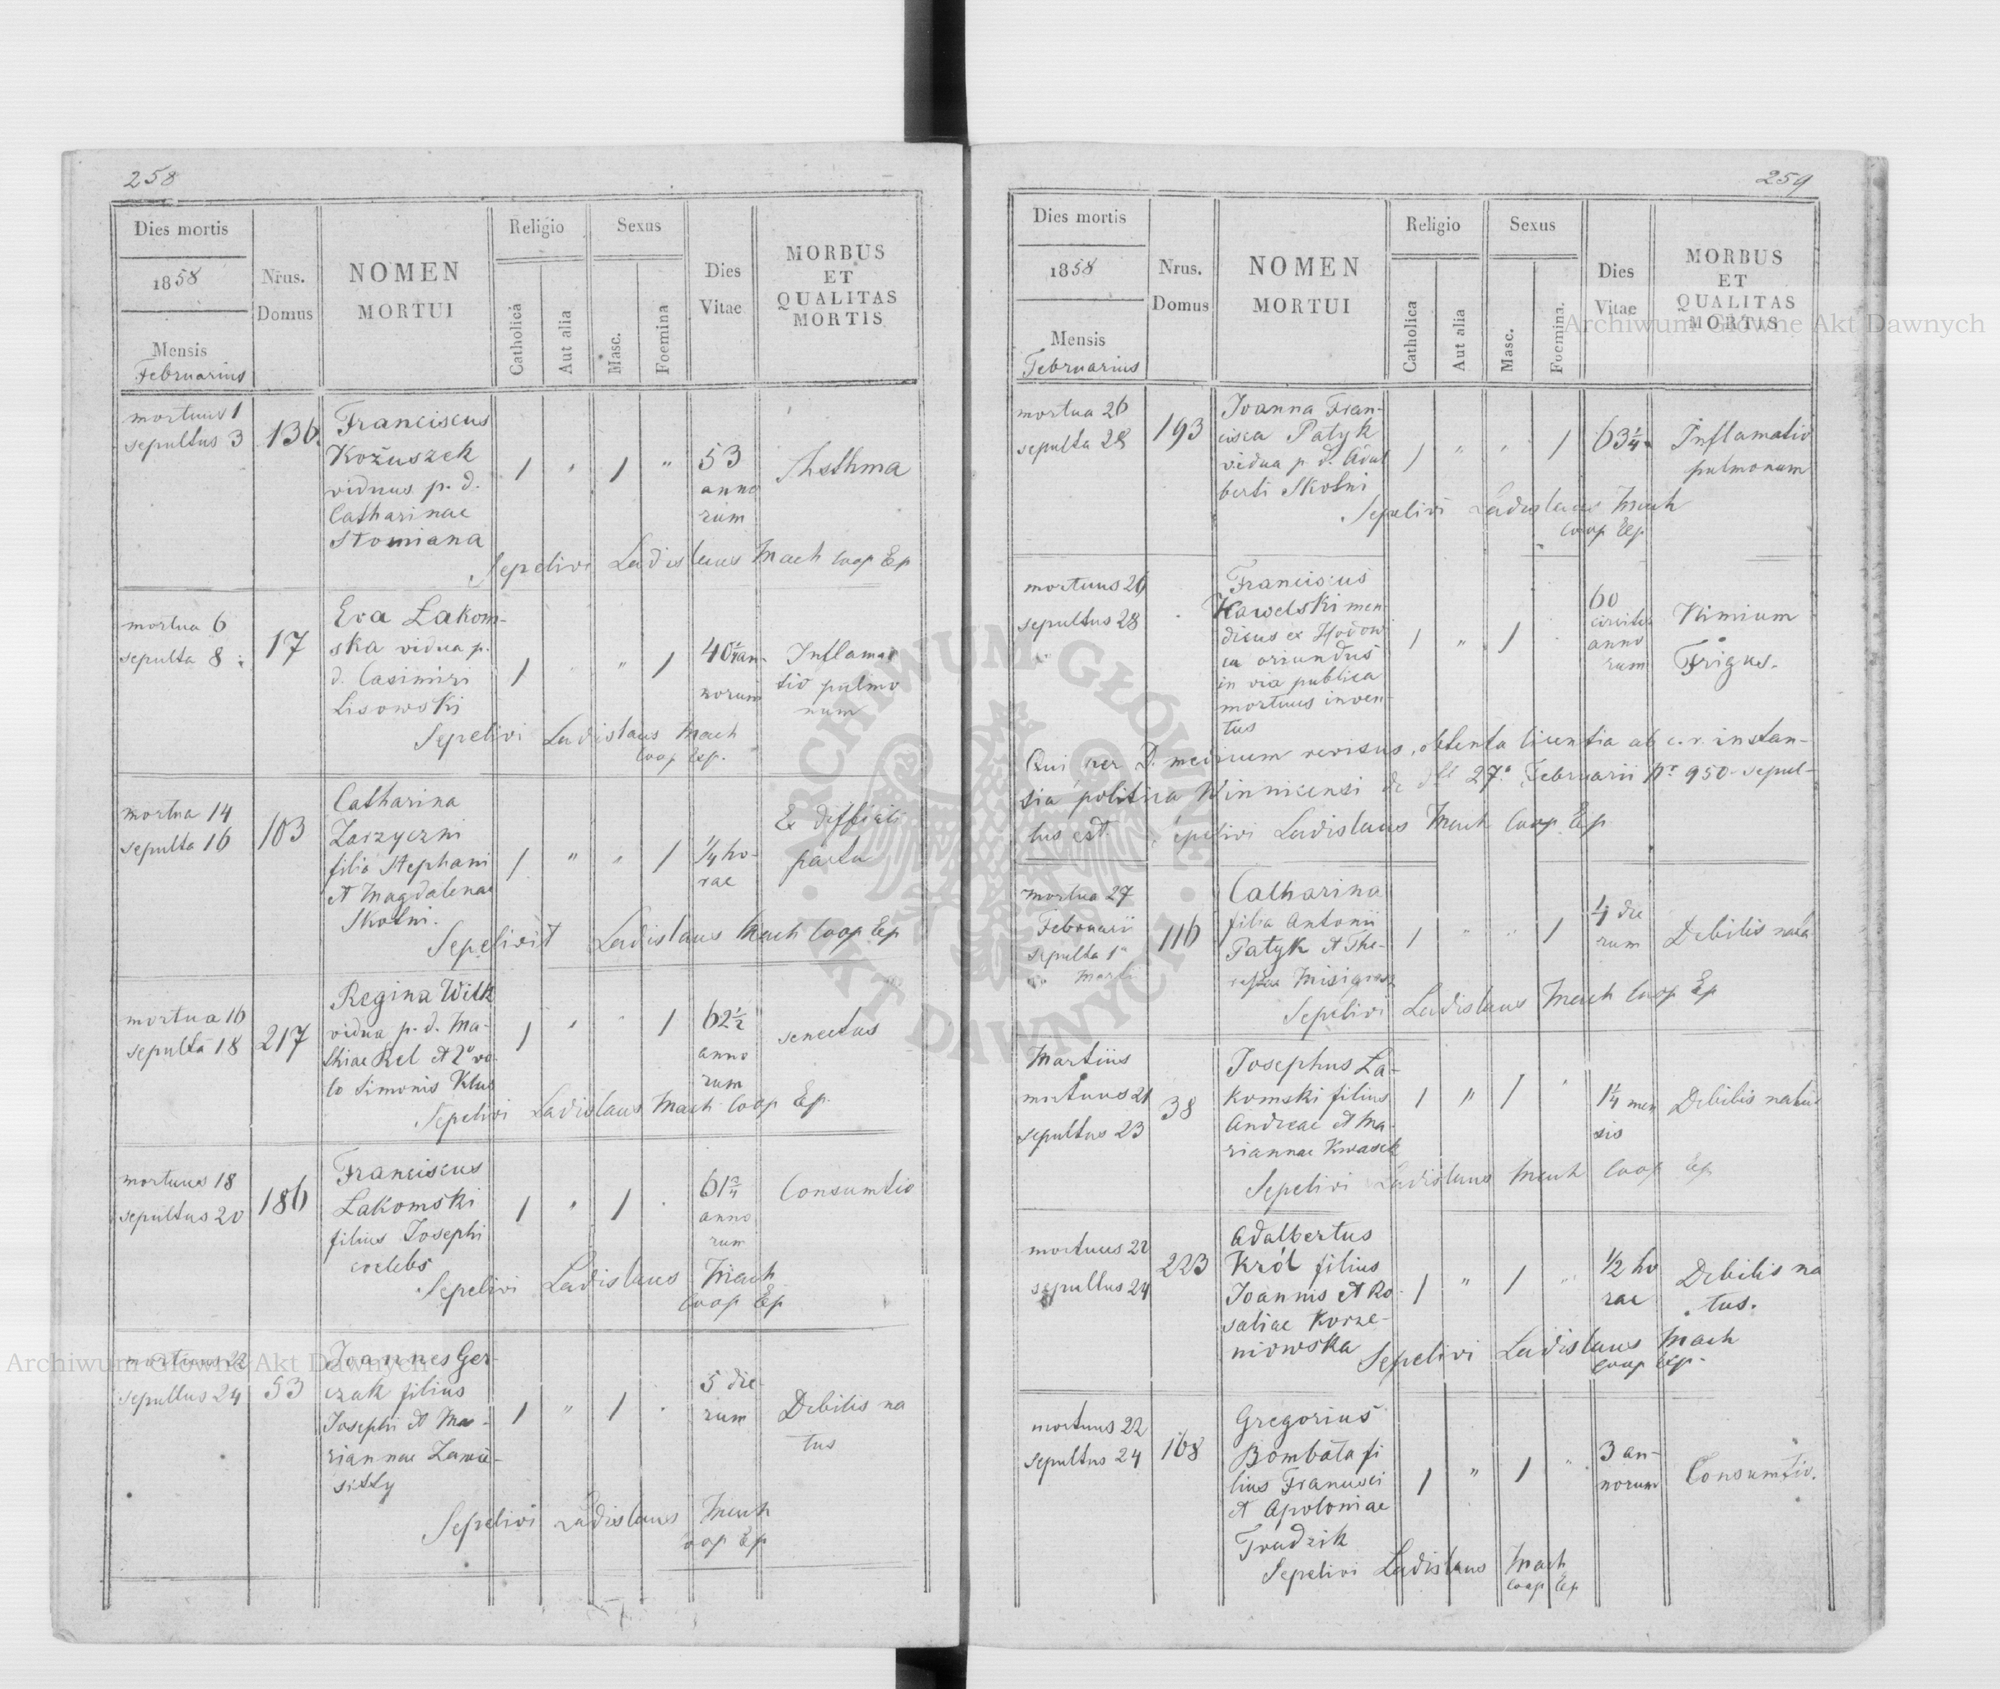 258
Dies mortis
1858
Mensis
Februarius
Nrus.
Domus
NOMEN
MORTUI
Religio
Catholica
Aut alia
Sexus
Masc.
Foemina
Dies
Vitae
MORBUS
ET
QUALITAS
MORTIS
mortuus 1
sepultus 3
136.
Franciscus
Kożuszek
viduus p. d.
Catharinae
Słomiana
1 " 1 "
53
anno
rum
Asthma
Sepelivi Ladislaus Mach Coop Ep
mortua 6
sepulta 8
17
Eva Łakom-
ska vidua p.
d. Casimiri
Lisowski
1 " " 1
40 1/4 an-
norum
Inflama
tio pulmo
num
Sepelivi Ladislaus Mach
Coop Exp.
mortua 14
sepulta 16
103
Catharina
Zarzyczni
filia Stephani
et Magdalenae
Skotni.
1 " " 1
1/4 ho-
rae
Ex difficili
partu
Sepelivit Ladislaus Mach Coop Ep
mortua 16
sepulta 18
217
Regina Wilk
vidua p. d. Ma-
thiae Rel et 2o vo
to Simonis Klus
1 " " 1
62 1/2
anno
rum
senectus
Sepelivi Ladislaus Mach Coop Ep.
mortuus 18
sepultus 20
186
Franciscus
Łakomski
filius Josephi
coelebs
1 " 1
61 3/4
anno
rum
Consumtio
Sepelivi Ladislaus Mach
Coop Ep
mortuus 22
sepultus 24
53
Joannes Ger-
czak filius
Josephi et Ma-
riannae
1 " 1
5 die-
rum
Debilis na
tus
Sepelivi Ladislaus Mach
Coop Ep
259
Dies mortis
1858
Mensis
Februarius
Nrus.
Domus
NOMEN
MORTUI
Religio
Catholica
Aut alia
Sexus
Masc.
Foemina.
Dies
Vitae
MORBUS
ET
QUALITAS
MORTIS
mortua 26
sepulta 28
193
Joanna Fran-
cisca Patyk
vidua p. d. Adal
berti Skotni
1 " " 1
63 1/4
Inflamatio
pulmonum
Sepelivi Ladislaus Mach
Coop Exp
mortuus 26
sepultus 28
Franciscus
Kawelski men
dicus ex Hodow
ca oriundus
in via publica
mortuus inven
tus
1 " 1
60
circiter
anno
rum
Nimium
Frigus.
Qui per D. medicum revisus, obtenta licentia ab c. r. instan-
tia politica Winnicensi de dtt 27a Februarii Nr 950 sepul-
tus est. Sepelivi Ladislaus Mach Coop Ep
mortua 27
Februarii
sepulta 1a
Martii
116
Catharina
filia Antonii
Patyk et The-
resiae
1 " " 1
4 die
rum
Debilis nata
Sepelivi Ladislaus Mach Coop Ep
Martius
mortuus 21
sepultus 23
38
Josephus Ła-
komski filius
Andreae et Ma-
riannae Kwasek
1 " 1
1 1/4 men
sis
Debilis natus
Sepelivi Ladislaus Mach Coop Ep
mortuus 22
sepultus 24
223
Adalbertus
Król filius
Joannis et Ro
saliae Korze-
niowska
1 " 1 "
1/2 ho
rae
Debilis na
tus.
Sepelivi Ladislaus Mach
Coop Exp.
mortuus 22
sepultus 24
168
Gregorius
Bombata fi
lius Francisci
et Apoloniae
Trudzik
1 " 1 "
3 an-
norum
Consumtio.
Sepelivi Ladislaus Mach
Coop Ep
Archiwum Główne Akt Dawnych
Archiwum Główne Akt Dawnych
ARCHIWUM GŁÓWNE
AKT DAWNYCH